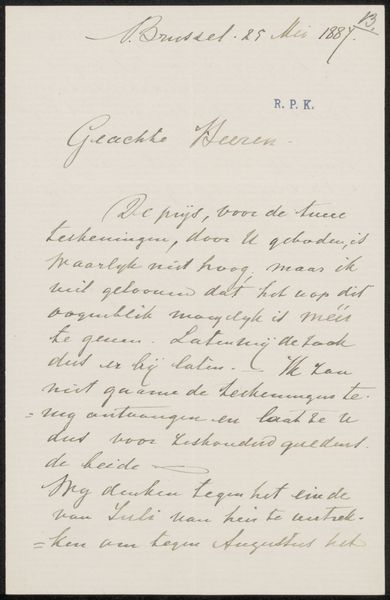 Brussel. 25 Mei 1887.
R. P. K.
Geachte Heeren.
De prijs, voor de twee
teekeningen, door U geboden, is
waarlyk niet hoog, maar ik
wil gelooven dat het u op dit
oogenblik moeyelyk is méér
te geven. Laten wij de zaak
dus er by laten. — Ik zou
niet gaarne de teekeningen te-
= rug ontvangen en laat ze U
dus voor guldens.
de beide —
Wy denken tegen het einde
van Juli van hier te vertrek-
= ken om tegen Augustus het